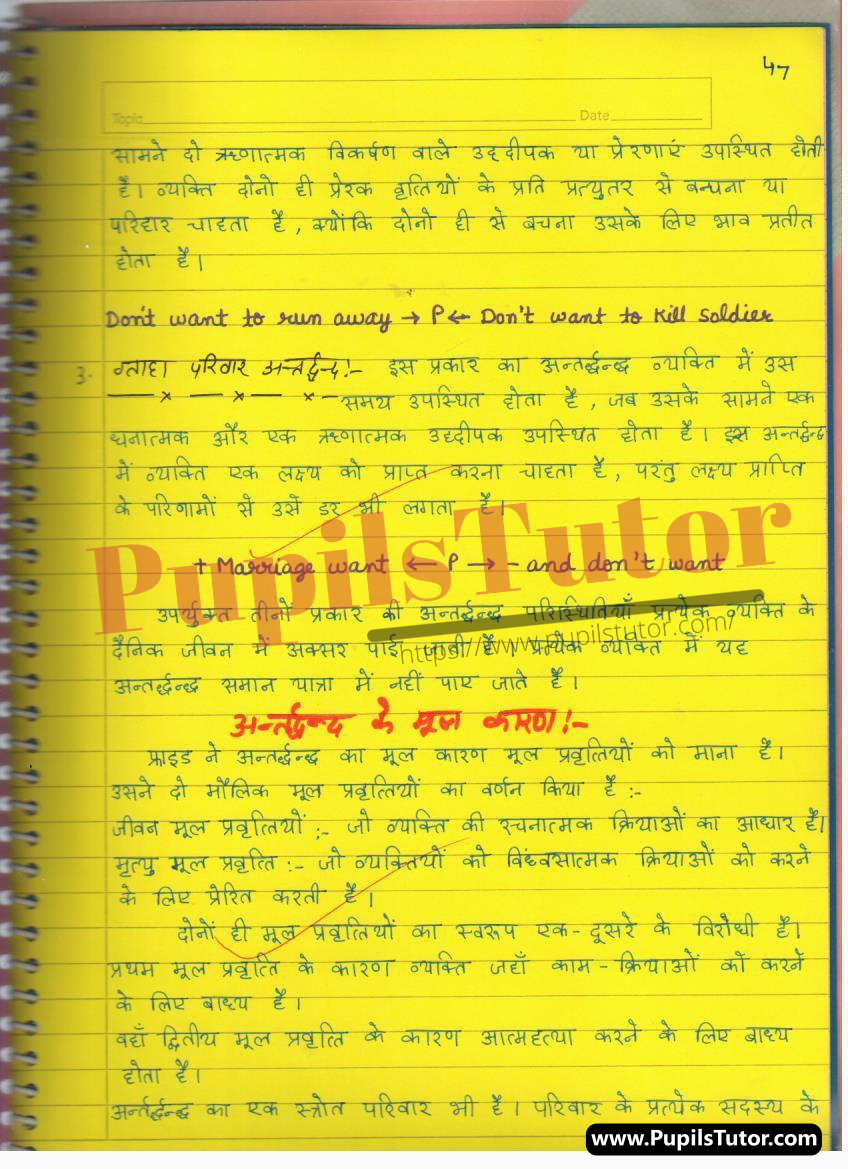 47
Topic
Date
सामने दो ऋणात्मक विकर्षण वाले उद्दीपक या प्रेरणाएं उपस्थित होती
है। व्यक्ति दोनो ही प्रेरक वृत्तियों के प्रति प्रत्युतर से बन्धना या
परिहार चाहता है, क्योंकि दोनो ही से बचना उसके लिए भाव प्रतीत
होता है।
Don't want to run away → P ← Don't want to kill soldier
3. ग्ताह। परिवार अन्तर्द्वन्द :- इस प्रकार का अन्तर्द्धन्द्ध व्यक्ति में उस
समय उपस्थित होता है, जब उसके सामने एक
धनात्मक और एक ऋणात्मक उद्दीपक उपस्थित होता है। इस अन्तर्द्वन्द्व
में व्यक्ति एक लक्ष्य को प्राप्त करना चाहता है, परंतु लक्ष्य प्राप्ति
के परिणामों से उसे डर भी लगता है।
PupilsTutor
+ Marriage want ← P → - and don't want
उपर्युक्त तीनों प्रकार की अन्तर्द्धन्द्ध परिस्थितियाँ प्रत्येक व्यक्ति के
https://www.pupilstutor.com/
दैनिक जीवन में अक्सर पाई जाती है। प्रत्येक व्यक्ति में यह
अन्तर्द्धन्द्ध समान यात्रा में नहीं पाए जाते है।
अन्तर्द्वन्द के मूल कारण :-
फ्राइड ने अन्तर्द्धन्द्ध का मूल कारण मूल प्रवृत्तियों को माना है।
उसने दो मौलिक मूल प्रवृत्तियों का वर्णन किया है :-
जीवन मूल प्रवृत्तियों :- जो व्यक्ति की रचनात्मक क्रियाओं का आधार है।
मृत्यु मूल प्रवृत्ति :- जो व्यक्तियों को विंध्वसात्मक क्रियाओं को करने
के लिए प्रेरित करती है।
दोनों ही मूल प्रवृत्तियों का स्वरूप एक-दूसरे के विरोधी है।
प्रथम मूल प्रवृत्ति के कारण व्यक्ति जहाँ काम-क्रियाओं को करने
के लिए बाध्य है।
वहाँ द्वितीय मूल प्रवृत्ति के कारण आत्महत्या करने के लिए बाध्य
होता है।
अर्न्तर्द्धन्द्ध का एक स्त्रोत परिवार भी है। परिवार के प्रत्येक सदस्य के
www.PupilsTutor.com